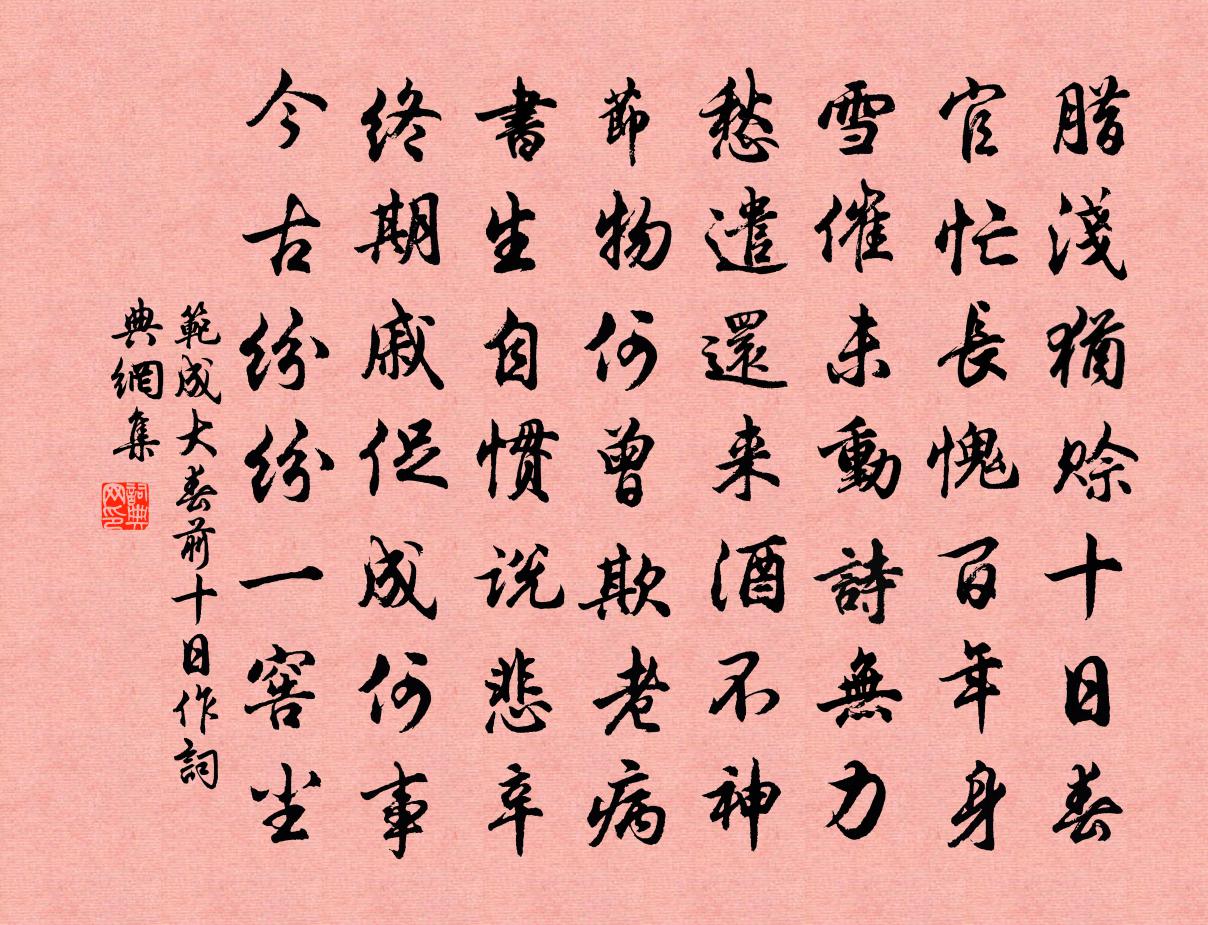 腊淺猶賒十日春
官忙長愧百年身
雪催未動詩無力
愁遣還来酒不神
節物何曾欺老病
書生自慣説悲辛
終期戚促成何事
今古紛紛一窖尘
範成大春前十日作詞
典網集
詞典
网印